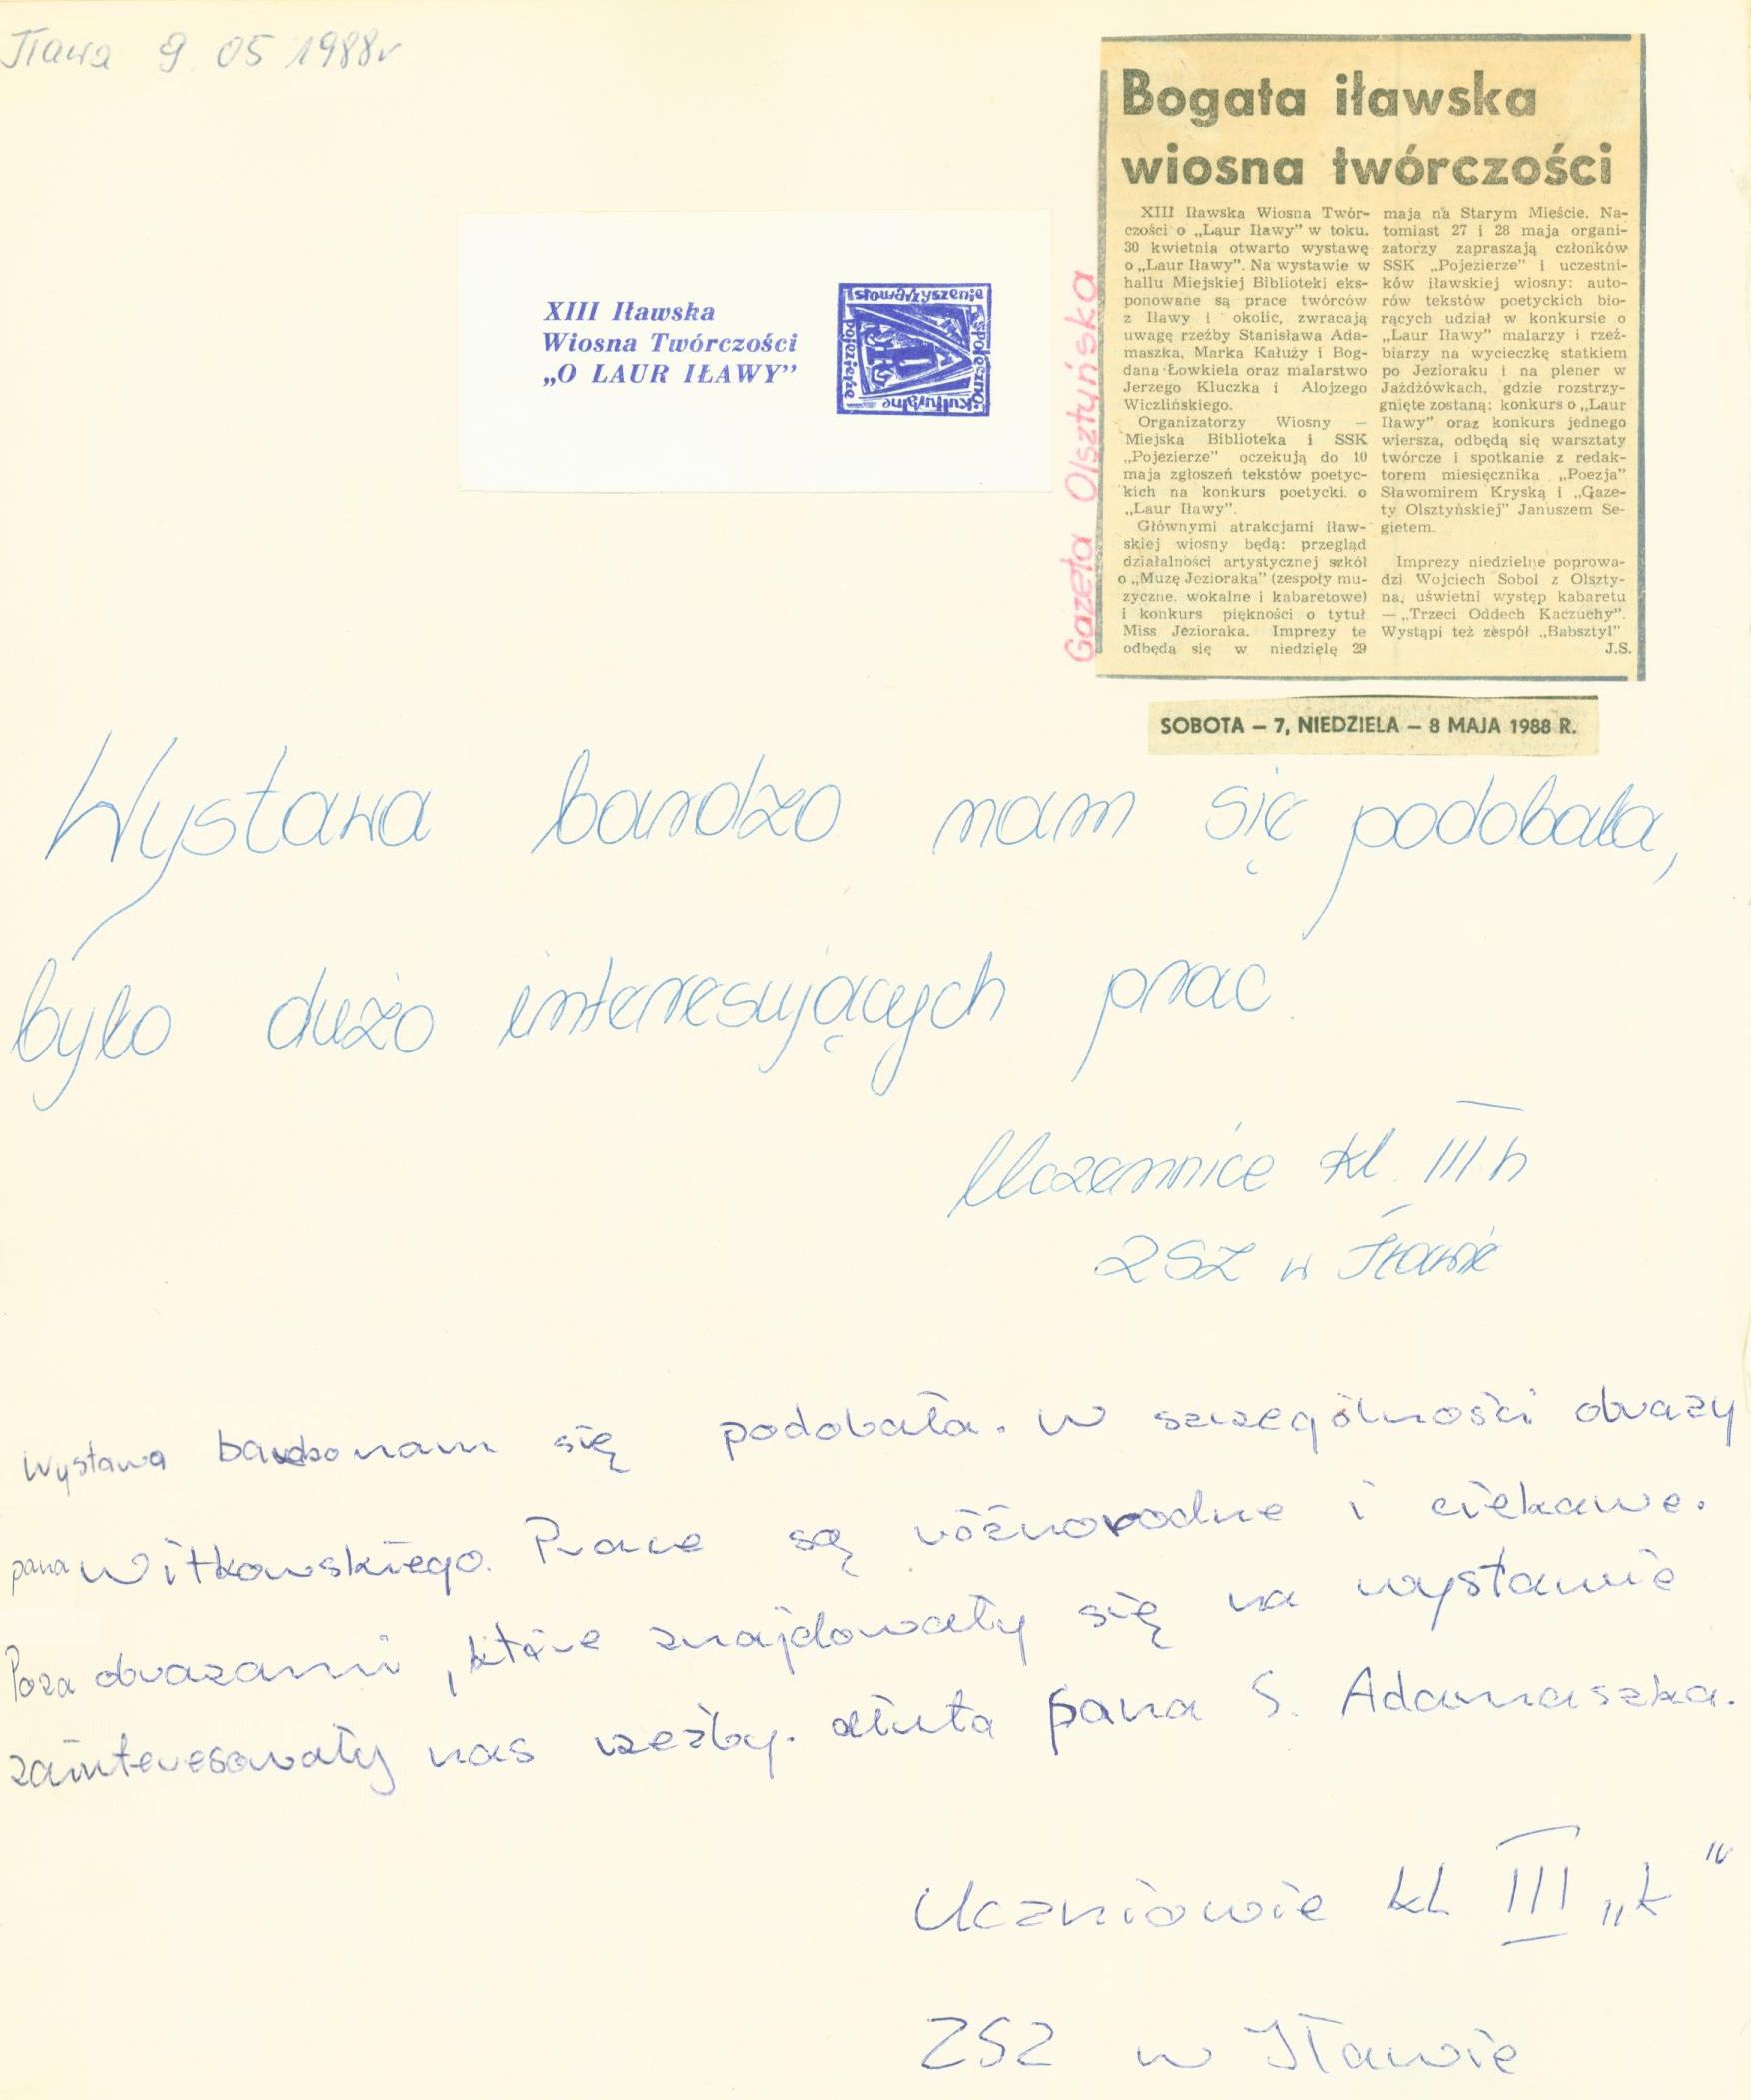 Iława 9.05 1988r
Bogata iławska
wiosna twórczości
XIII Iławska Wiosna Twór-
czości o „Laur Iławy” w toku.
30 kwietnia otwarto wystawę
o „Laur Iławy”. Na wystawie w
hallu Miejskiej Biblioteki eks-
ponowane są prace twórców
z Iławy i okolic, zwracają
uwagę rzeźby Stanisława Ada-
maszka, Marka Kałuży i Bog-
dana Łowkiela oraz malarstwo
Jerzego Kluczka i Alojzego
Wiczlińskiego.
Organizatorzy Wiosny —
Miejska Biblioteka i SSK
„Pojezierze” oczekują do 10
maja zgłoszeń tekstów poetyc-
kich na konkurs poetycki o
„Laur Iławy”.
Głównymi atrakcjami iław-
skiej wiosny będą: przegląd
działalności artystycznej szkół
o „Muzę Jezioraka” (zespoły mu-
zyczne, wokalne i kabaretowe)
i konkurs piękności o tytuł
Miss Jezioraka. Imprezy te
odbędą się w niedzielę 29
maja na Starym Mieście. Na-
tomiast 27 i 28 maja organi-
zatorzy zapraszają członków
SSK „Pojezierze” i uczestni-
ków iławskiej wiosny: auto-
rów tekstów poetyckich bio-
rących udział w konkursie o
„Laur Iławy” malarzy i rzeź-
biarzy na wycieczkę statkiem
po Jezioraku i na plener w
Jażdżówkach, gdzie rozstrzy-
gnięte zostaną: konkurs o „Laur
Iławy” oraz konkurs jednego
wiersza, odbędą się warsztaty
twórcze i spotkanie z redak-
torem miesięcznika „Poezja”
Sławomirem Kryską i „Gaze-
ty Olsztyńskiej” Januszem Se-
gietem.
Imprezy niedzielne poprowa-
dzi Wojciech Sobol z Olszty-
na, uświetni występ kabaretu
— „Trzeci Oddech Kaczuchy”.
Wystąpi też zespół „Babsztyl”
J.S.
Gazeta Olsztyńska
SOBOTA – 7, NIEDZIELA – 8 MAJA 1988 R.
XIII Iławska
Wiosna Twórczości
„O LAUR IŁAWY”
Stowarzyszenie
społeczno
kulturalne
pojezierze
Wystawa bardzo nam się podobała,
było dużo interesujących prac.
Uczennice kl. III h
ZSZ w Iławie
Wystawa bardzo nam się podobała. W szczególności obrazy
pana Witkowskiego. Prace są różnorodne i ciekawe.
Poza obrazami, które znajdowały się na wystawie
zainteresowały nas rzeźby. dłuta pana S. Adamaszka.
Uczniowie kl III „k”
ZSZ w Iławie